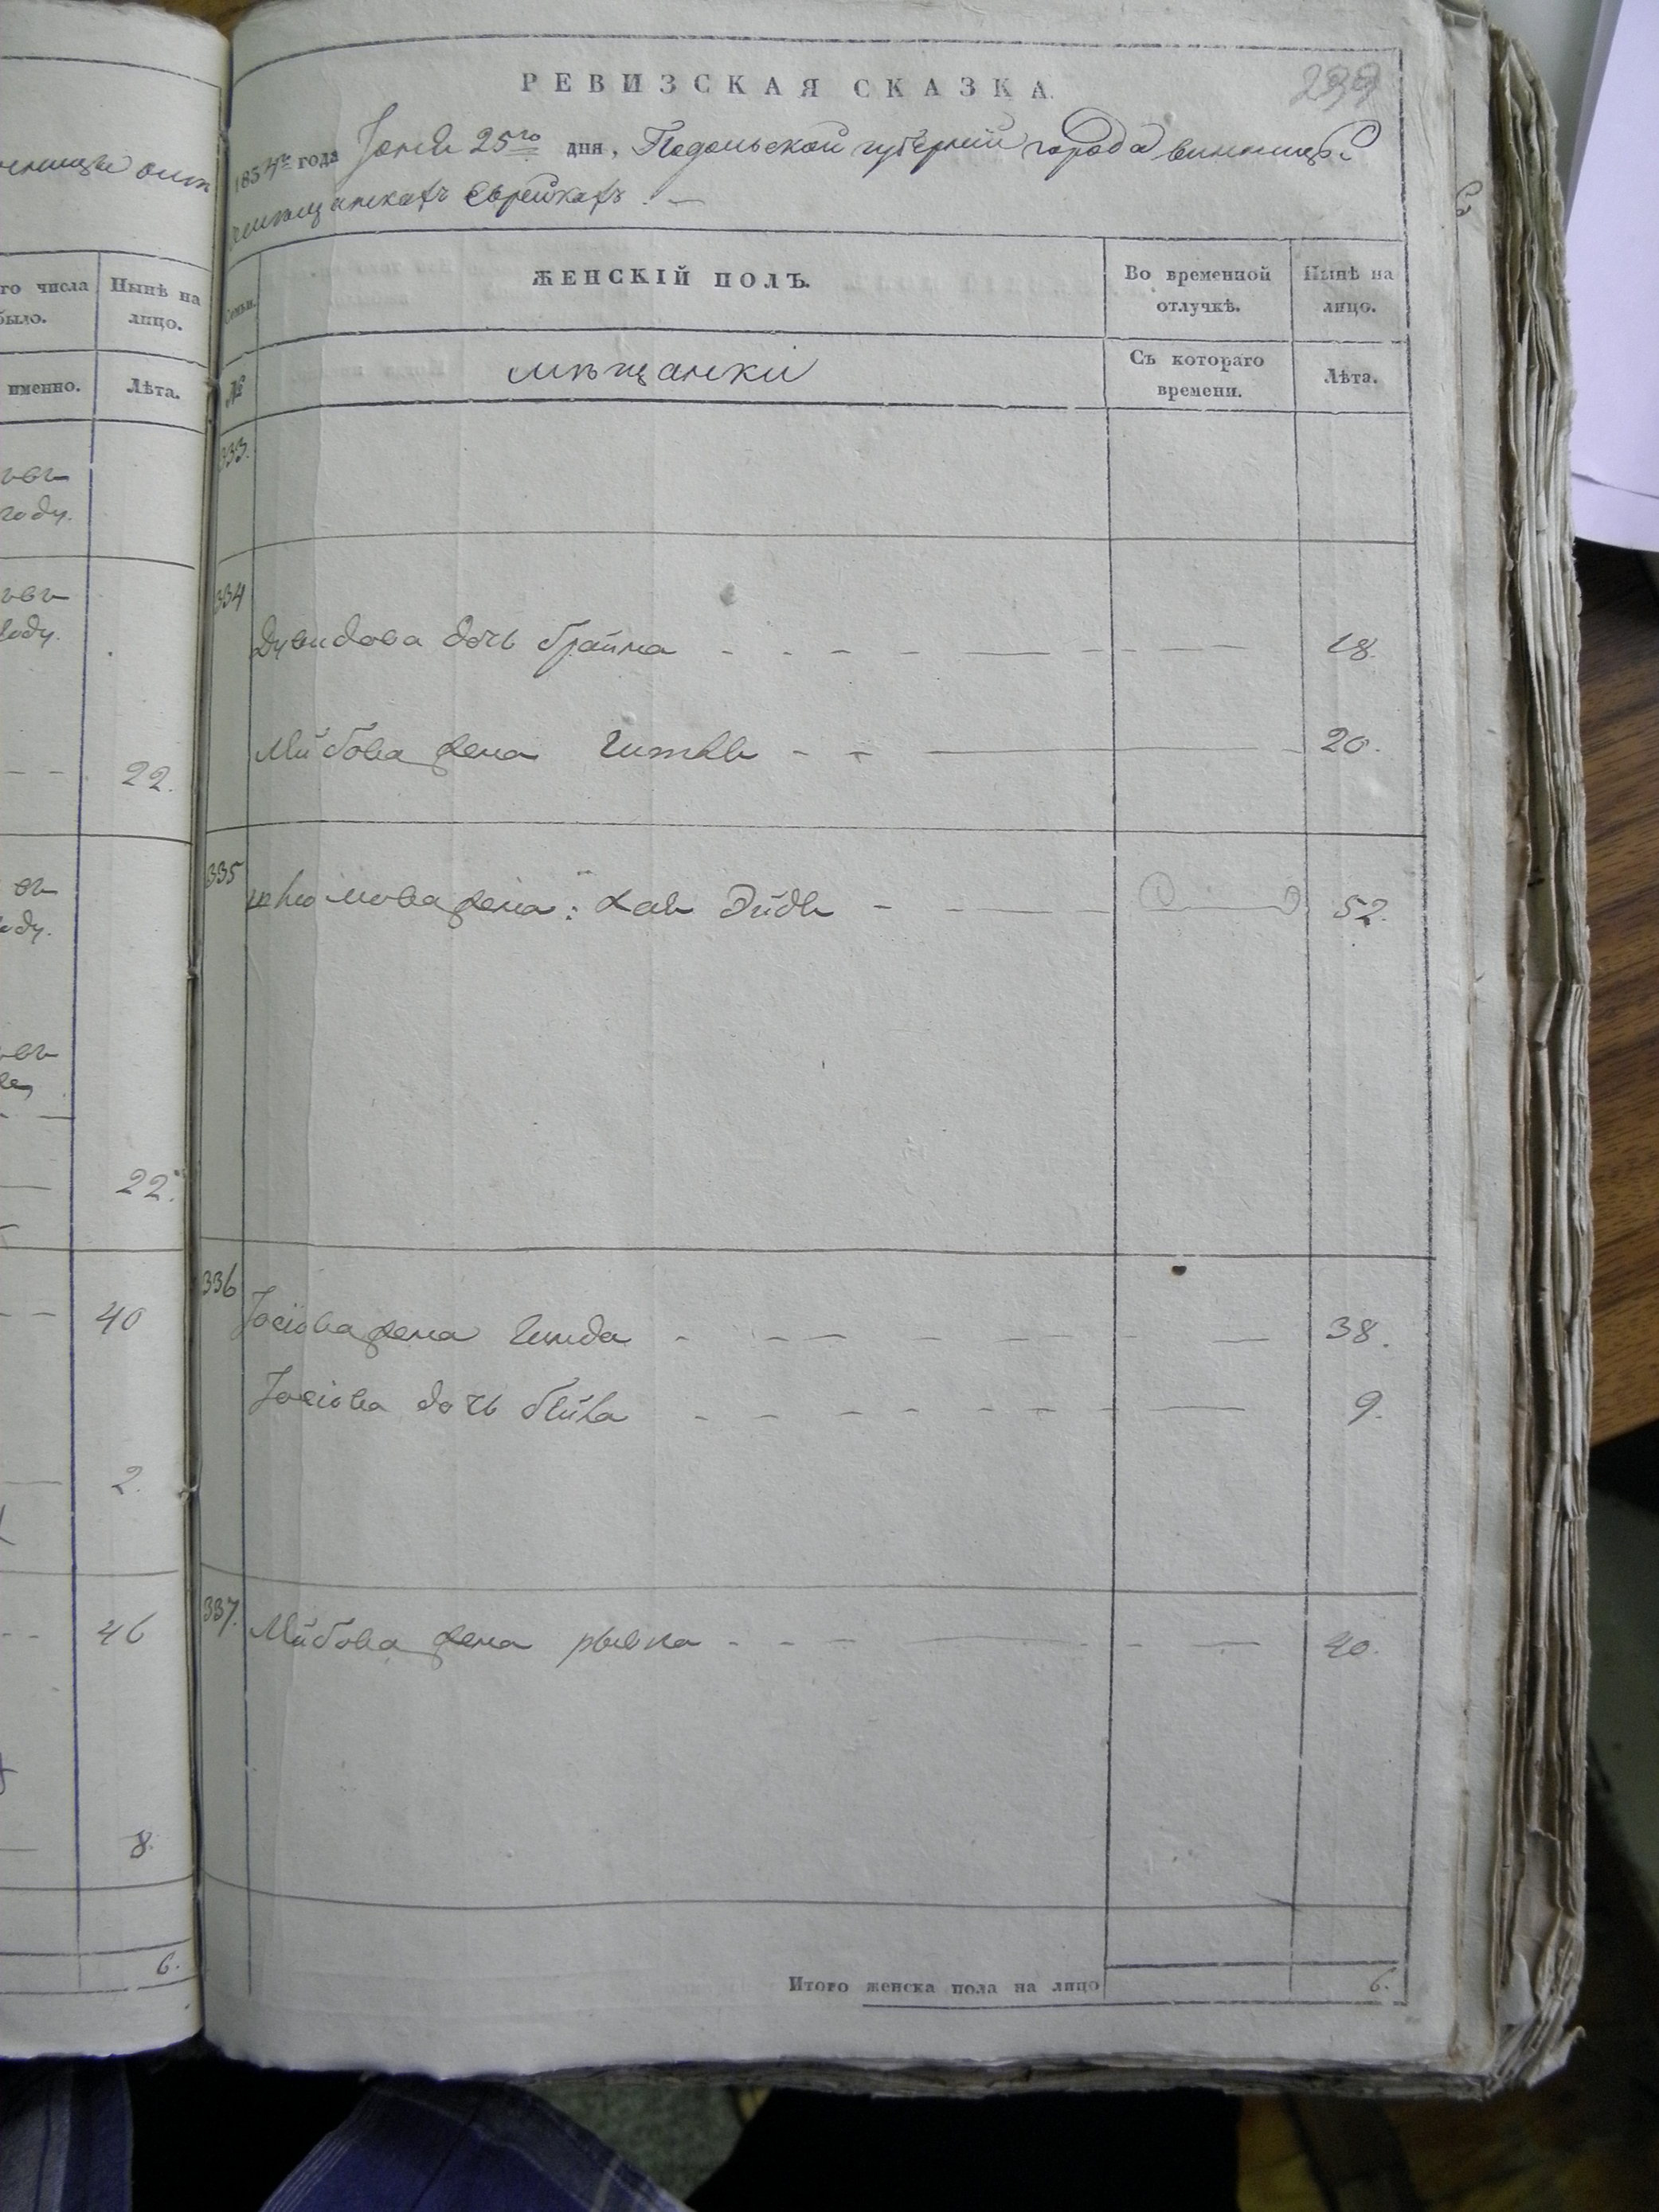 РЕВИЗСКАЯ СКАЗКА.
239
1834го года Іюня 25го дня, Подольской губерніи города винницы о
мѣщанкахъ Еврейкахъ. —
го числа
было.
Нынѣ на
лицо.
именно.
Лѣта.
Семьи.
ЖЕНСКІЙ ПОЛЪ.
Во временной
отлучкѣ.
Нынѣ на
лицо.
№
мѣщанки
Съ котораго
времени.
Лѣта.
году.
22.
22.
40
2.
46
8.
6.
333.
334
Дувидова дочь брайна 18.
Лейбова жена 20.
335
жена: хая Эйдля 52.
336
Іосіова жена Гинда 38.
Іосіова дочь бейла 9.
337.
Лейбова жена рывка 40.
Итого женска пола на лицо 6.